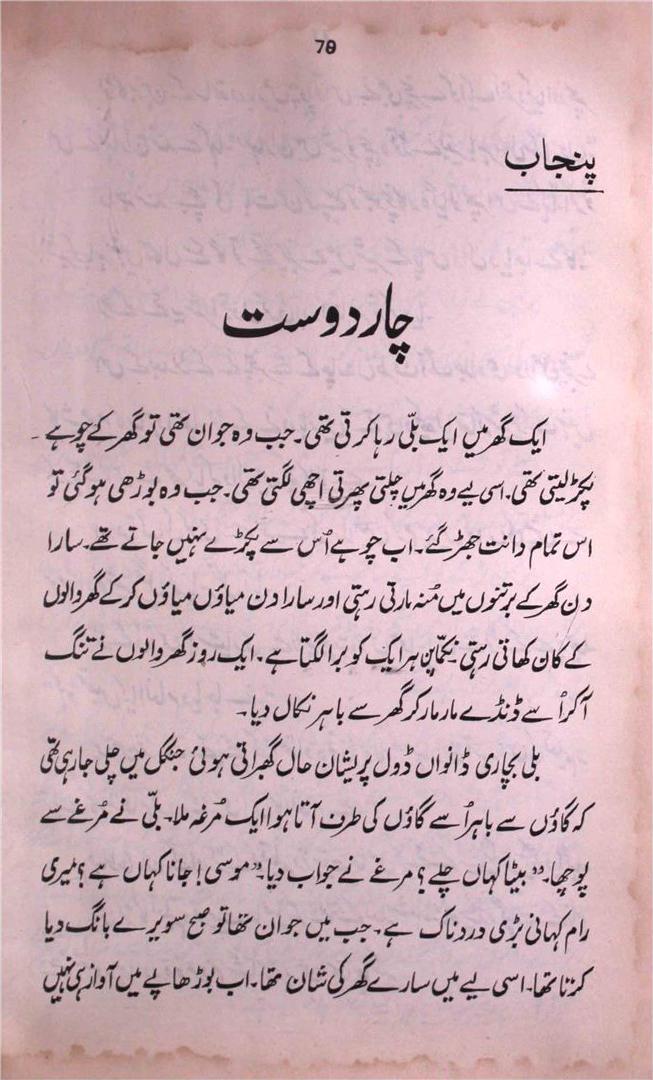 70
پنجاب
چار دوست
ایک گھر میں ایک بلّی رہا کرتی تھی۔ جب وہ جوان تھی تو گھر کے چوہے
پکڑ لیتی تھی۔ اسی لیے وہ گھر میں چلتی پھرتی اچھی لگتی تھی۔ جب وہ بوڑھی ہو گئی تو
اس تمام دانت جھڑ گئے۔ اب چوہے اُس سے پکڑے نہیں جاتے تھے۔ سارا
دن گھر کے برتنوں میں مُنہ مارتی رہتی اور سارا دن میاؤں میاؤں کر کے گھر والوں
کے کان کھاتی رہتی نکمّا پن ہر ایک کو برا لگتا ہے۔ ایک روز گھر والوں نے تنگ
آ کر اُسے ڈنڈے مار مار کر گھر سے باہر نکال دیا۔
بلی بچاری ڈانواں ڈول پریشان حال گھبراتی ہوئی جنگل میں چلی جا رہی تھی
کہ گاؤں سے باہر اُسے گاؤں کی طرف آتا ہوا ایک مُرغہ ملا۔ بلّی نے مُرغے سے
پوچھا۔ "بیٹا کہاں چلے؟ مرغے نے جواب دیا۔ "موسی! جانا کہاں ہے؟ میری
رام کہانی بڑی دردناک ہے۔ جب میں جوان تھا تو صبح سویرے بانگ دیا
کرتا تھا۔ اسی لیے میں سارے گھر کی شان تھا۔ اب بوڑھاپے میں آواز ہی نہیں